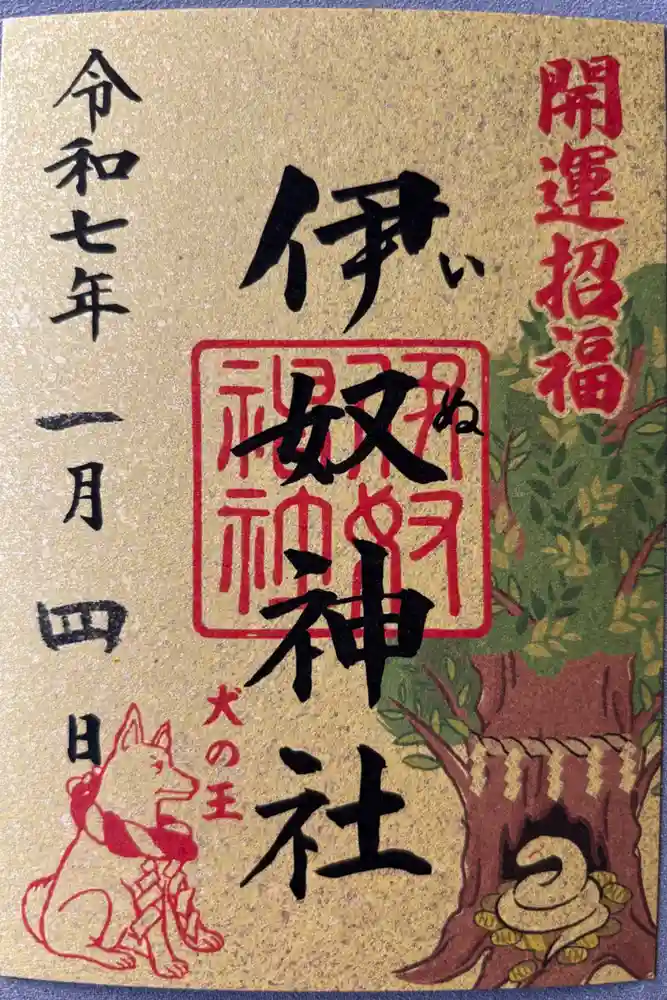 開運招福
伊奴神社
いぬ
伊奴神社
犬の王
令和七年一月四日